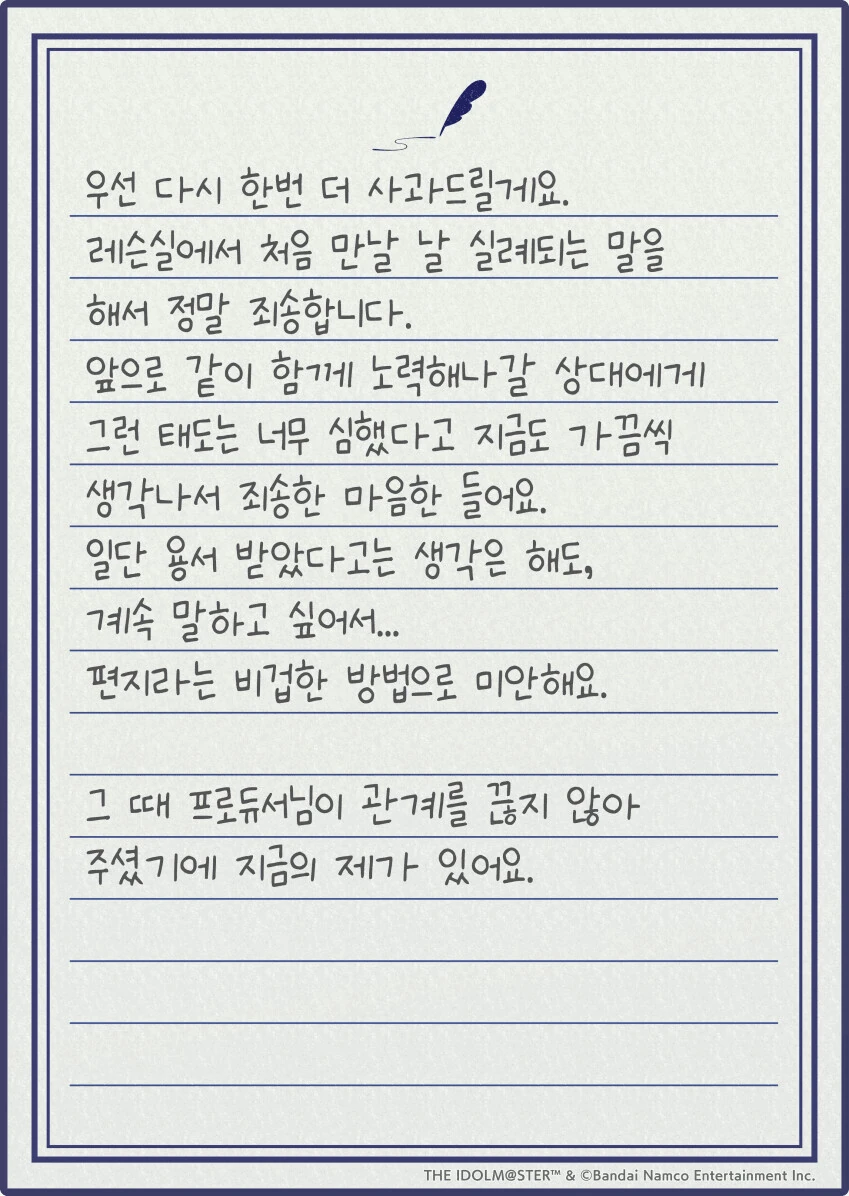 우선 다시 한번 더 사과드릴게요.
레슨실에서 처음 만날 날 실례되는 말을
해서 정말 죄송합니다.
앞으로 같이 함께 노력해나갈 상대에게
그런 태도는 너무 심했다고 지금도 가끔씩
생각나서 죄송한 마음한 들어요.
일단 용서 받았다고는 생각은 해도,
계속 말하고 싶어서...
편지라는 비겁한 방법으로 미안해요.
그 때 프로듀서님이 관계를 끊지 않아
주셨기에 지금의 제가 있어요.
THE IDOLM@STER™ & ©Bandai Namco Entertainment Inc.